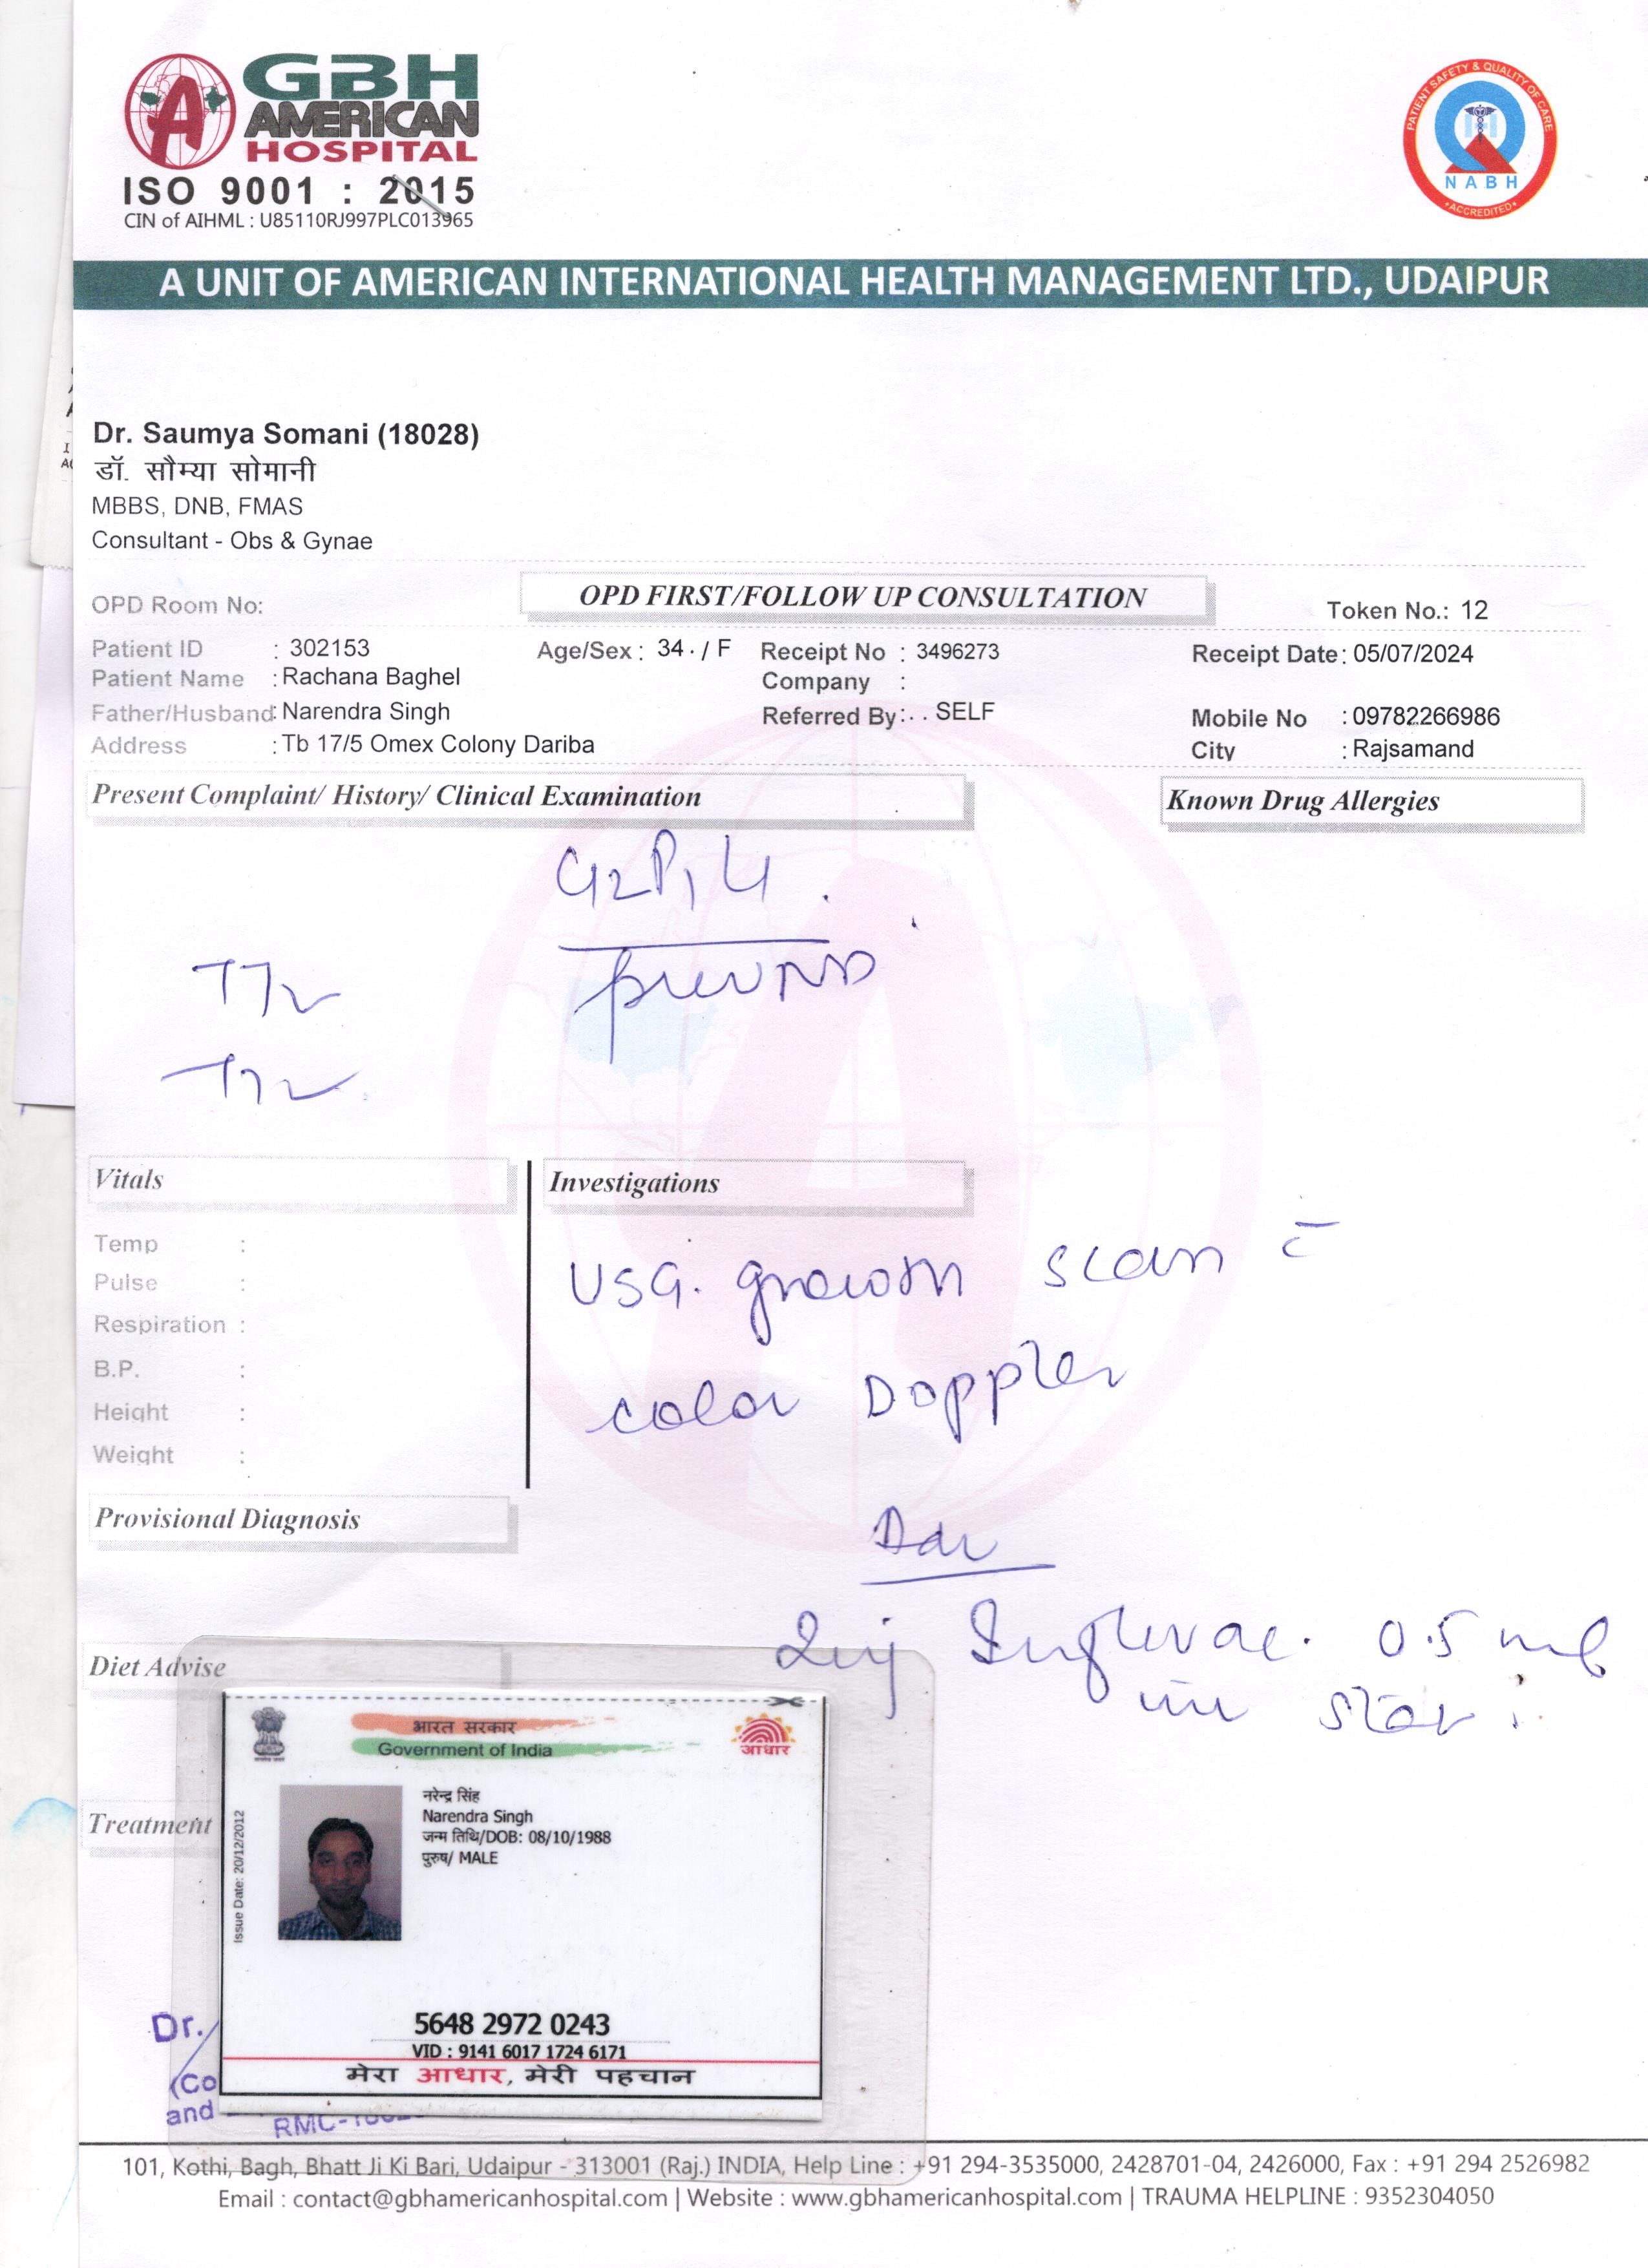 GBH
AMERICAN
HOSPITAL
ISO 9001 : 2015
CIN of AIHML : U85110RJ997PLC013965
PATIENT SAFETY & QUALITY OF CARE
NABH
ACCREDITED
A UNIT OF AMERICAN INTERNATIONAL HEALTH MANAGEMENT LTD., UDAIPUR
Dr. Saumya Somani (18028)
डॉ. सौम्या सोमानी
MBBS, DNB, FMAS
Consultant - Obs & Gynae
OPD Room No: OPD FIRST/FOLLOW UP CONSULTATION Token No.: 12
Patient ID : 302153 Age/Sex : 34 . / F Receipt No : 3496273 Receipt Date: 05/07/2024
Patient Name : Rachana Baghel Company :
Father/Husband: Narendra Singh Referred By:. . SELF Mobile No : 09782266986
Address : Tb 17/5 Omex Colony Dariba City : Rajsamand
Present Complaint/ History/ Clinical Examination Known Drug Allergies
G2P1L1
prev ND
Vitals Investigations
Temp :
Pulse :
Respiration :
B.P. :
Height :
Weight :
USG. growth scan c̄
color Doppler
Provisional Diagnosis
Adv
Inj Influvac. 0.5 ml
im stat.
Diet Advise
Treatment
भारत सरकार
Government of India
आधार
Issue Date: 20/12/2012
नरेन्द्र सिंह
Narendra Singh
जन्म तिथि/DOB: 08/10/1988
पुरुष/ MALE
5648 2972 0243
VID : 9141 6017 1724 6171
मेरा आधार, मेरी पहचान
Dr.
(Co
and
101, Kothi, Bagh, Bhatt Ji Ki Bari, Udaipur - 313001 (Raj.) INDIA, Help Line : +91 294-3535000, 2428701-04, 2426000, Fax : +91 294 2526982
Email : contact@gbhamericanhospital.com | Website : www.gbhamericanhospital.com | TRAUMA HELPLINE : 9352304050